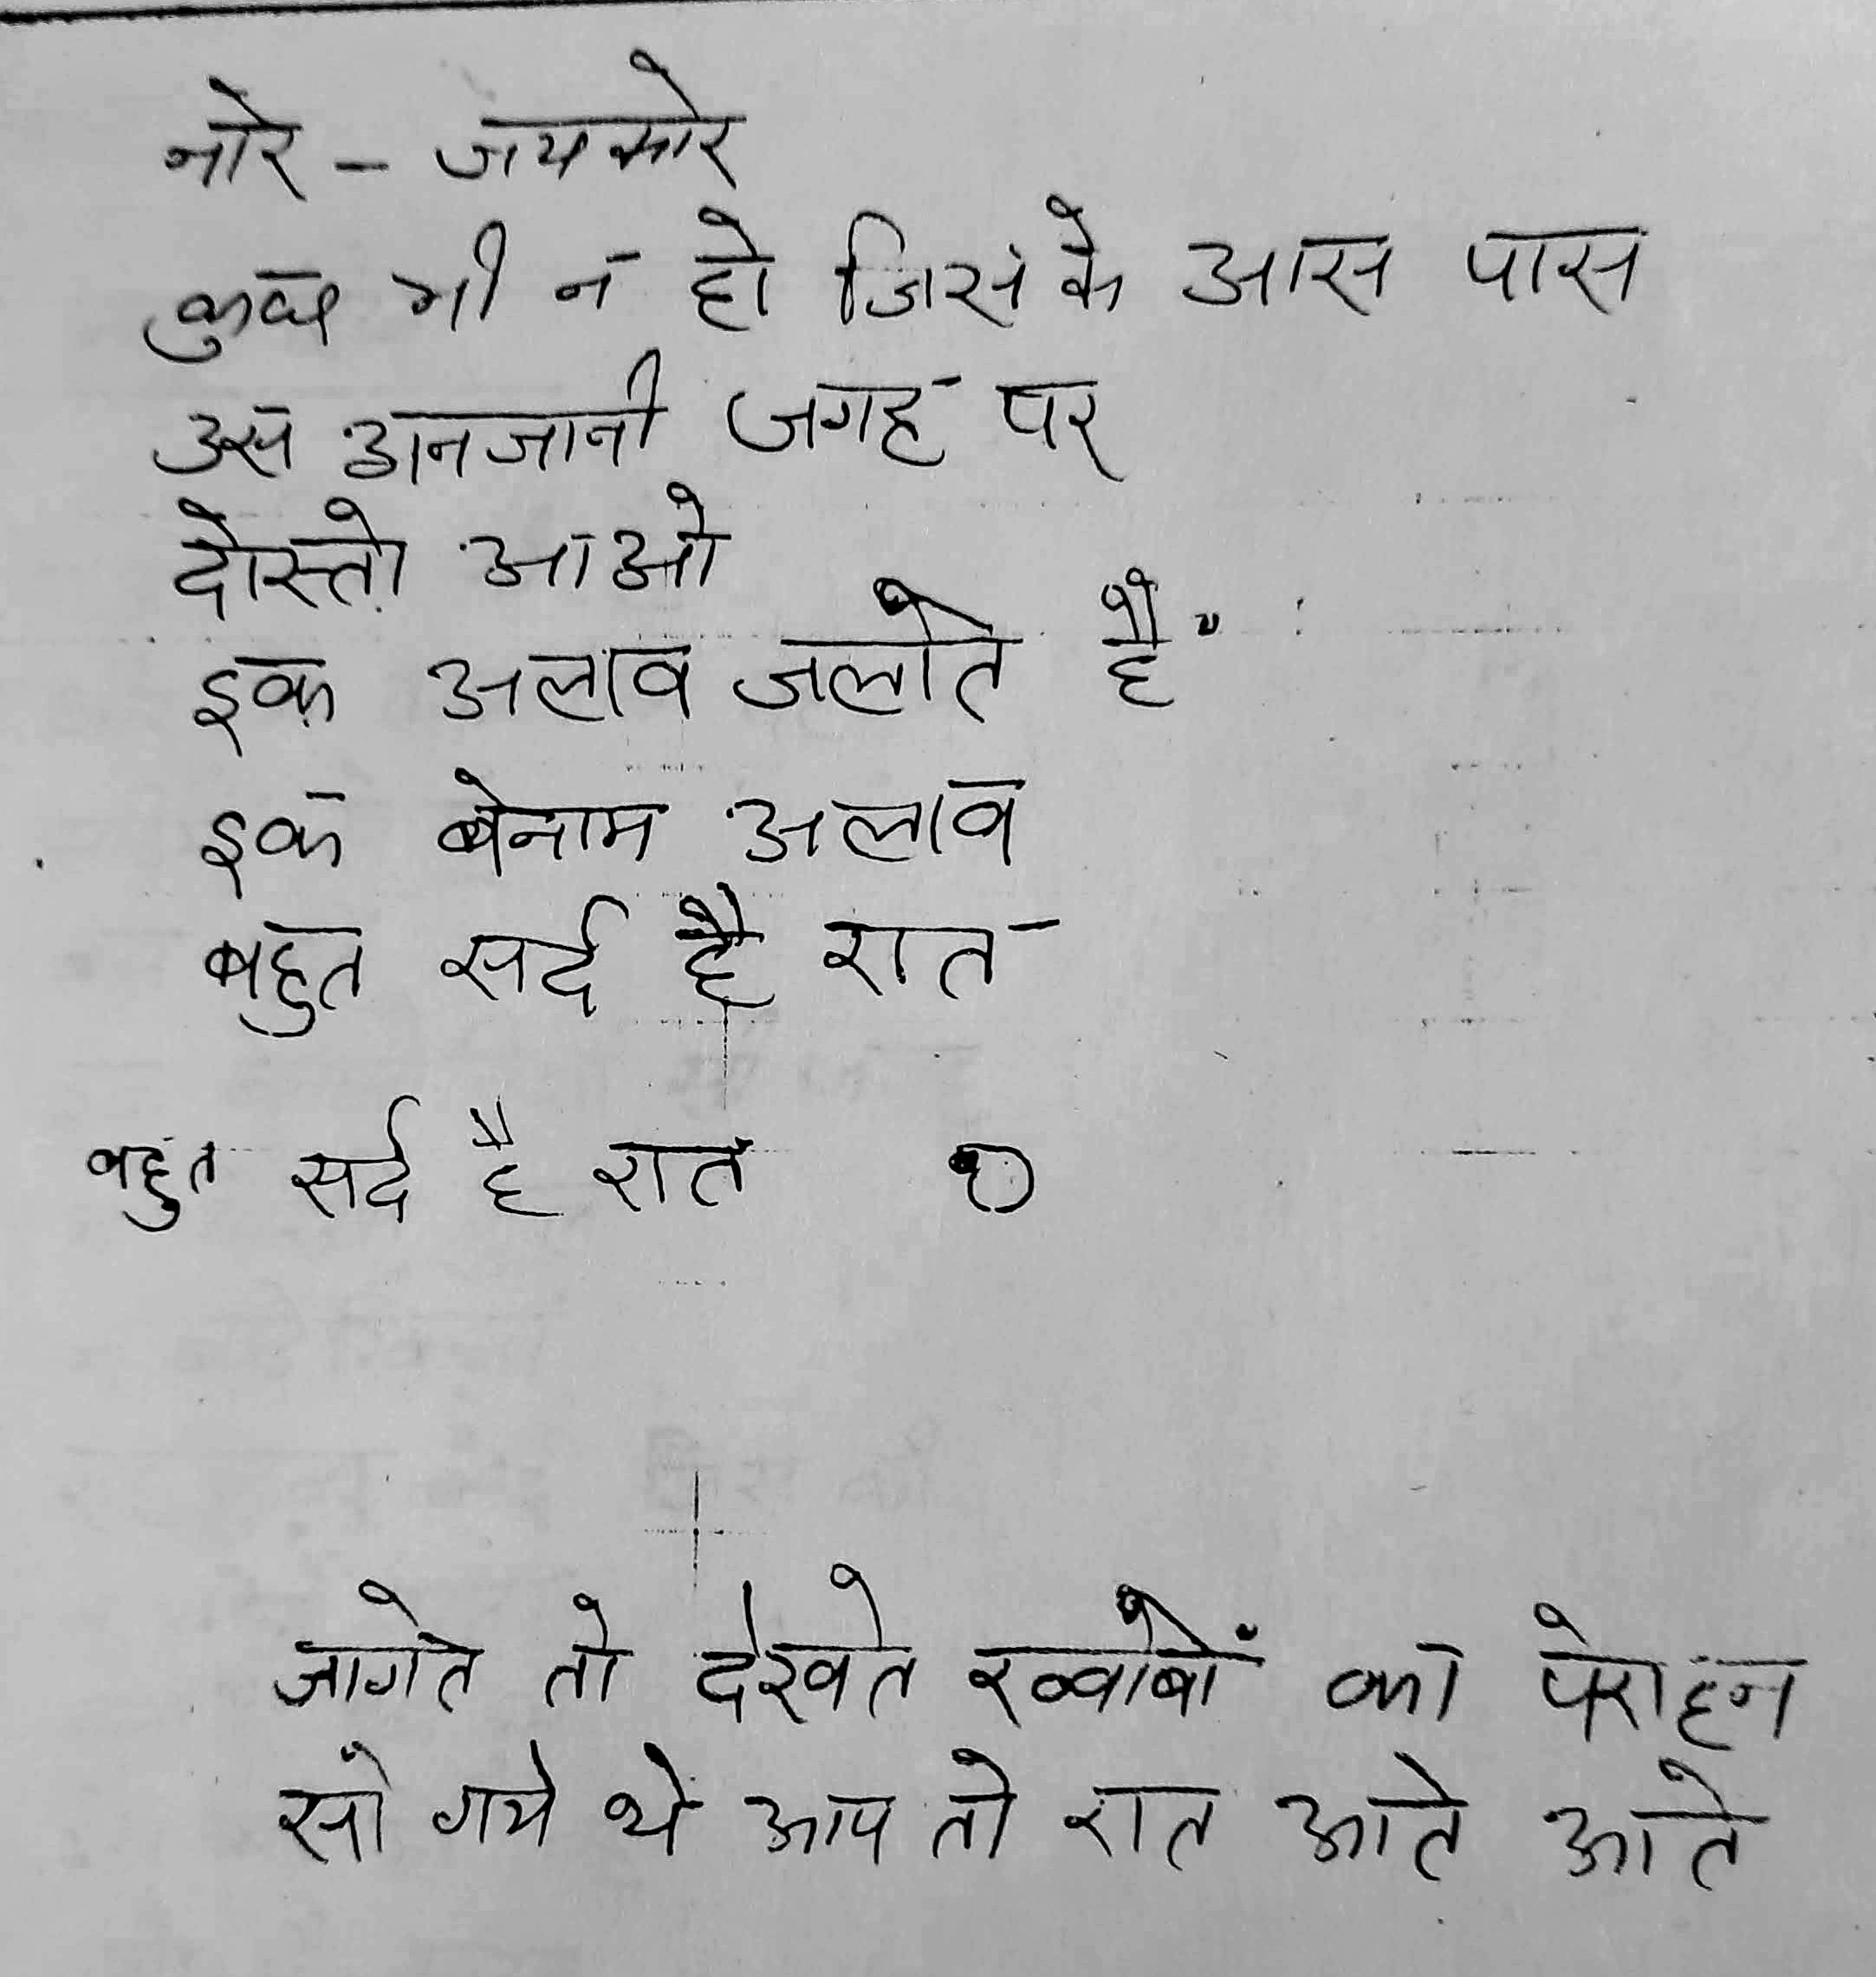 नारे - जयकारे
कुछ भी न हो जिस के आस पास
उस अनजानी जगह पर
दोस्तो आओ
इक अलाव जलाते हैं
इक बेनाम अलाव
बहुत सर्द है रात
बहुत सर्द है रात
जागते तो देखते ख्वाबों का पेराहन
सो गये थे आप तो रात आते आते